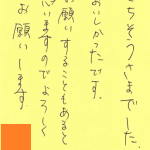 ちそうさまでした。
おいしかったです。
お願いすることもあると
思いますのでよろしく
お願いします